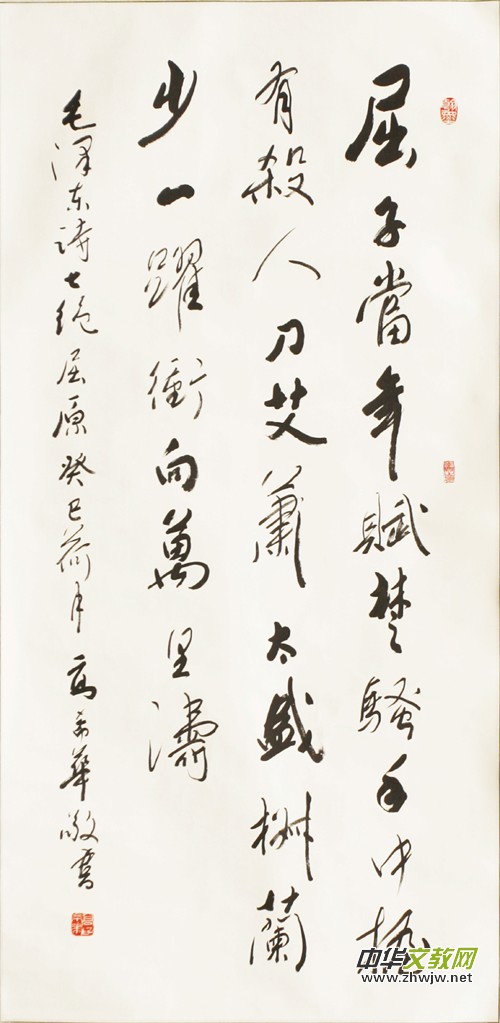 屈子當年賦楚騷手中握
有殺人刀艾蕭太盛椒蘭
少一躍衝向萬里濤
毛泽东诗七绝屈原癸巳荷月高希華敬書
中华文教网
www.zhwjw.net